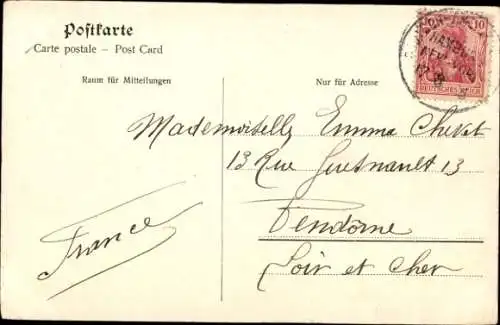 Postkarte
Carte postale – Post Card
Raum für Mitteilungen
Nur für Adresse
10
DEUTSCHES REICH
HAMBURG
NEW-YORK
Mademoiselle Emma Chevet
13 Rue Guesnault 13
Vendôme
Loir et Cher
France